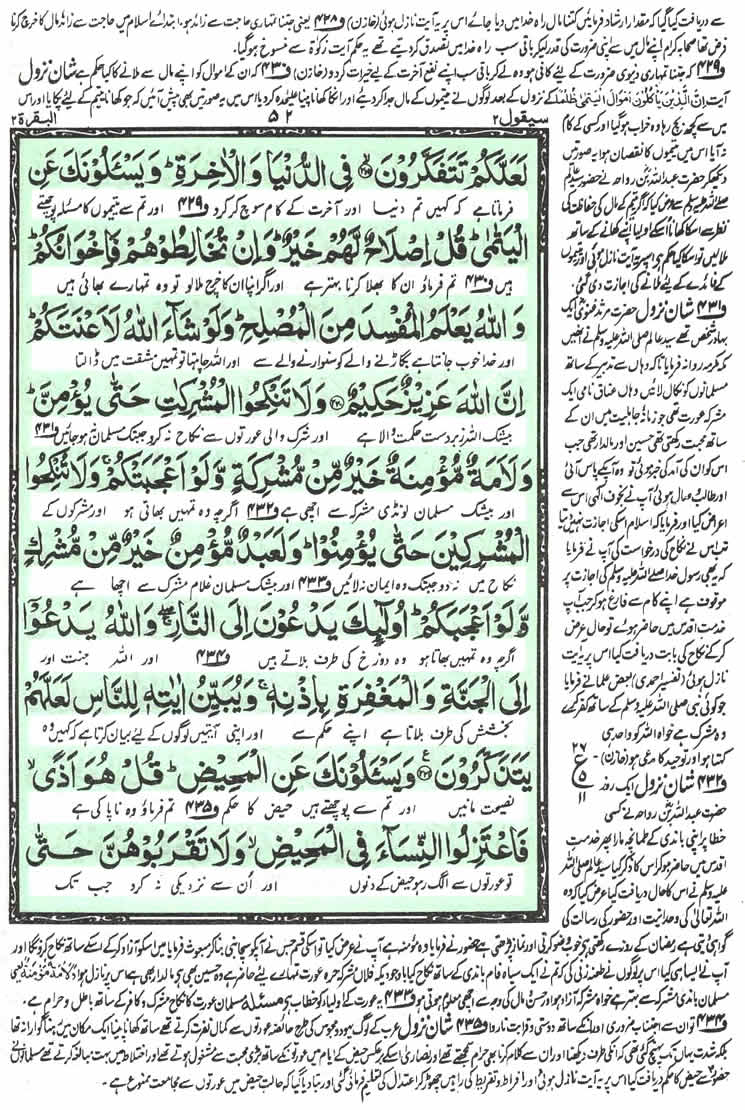 سے دریافت کیا گیا کہ مقدار ارشاد فرمائیں کتنا مال راہ خدا میں دیا جائے اس پر یہ آیت نازل ہوئی (خازن) و۴۲۸ یعنی جتنا تمہاری حاجت سے زائد ہو، ابتدائے اسلام میں حاجت سے زائد مال کا خرچ کرنا
فرض تھا صحابہ کرام اپنے مال میں سے اپنی ضرورت کی قدر لیکر باقی سب راہ خدا میں تصدق کر دیتے تھے یہ حکم آیت زکوٰۃ سے منسوخ ہو گیا۔
و۴۲۹ کہ جتنا تمہاری دنیوی ضرورت کے لئے کافی ہو وہ لے کر باقی سب اپنے نفع آخرت کے لیے خیرات کر دو (خازن) و۴۳۰ کہ ان کے اموال کو اپنے مال سے ملانے کا کیا حکم ہے شان نزول
آیت اِنَّ الَّذِیْنَ یَاْکُلُوْنَ اَمْوَالَ الْیَتٰمٰی ظُلْمًا کے نزول کے بعد لوگوں نے یتیموں کے مال جدا کر دیئے اور انکا کھانا پینا علیحدہ کر دیا اس میں یہ صورتیں بھی پیش آئیں کہ جو کھانا یتیم کے لئے پکایا اور اس
البقرة ۲
۵۲
سیقول ۲
لَعَلَّكُمْ تَتَفَكَّرُوْنَ ۙ فِی الدُّنْیَا وَ الْاٰخِرَةِ ؕ وَ یَسْــٴَـلُوْنَكَ عَنِ
فرماتا ہے کہ کہیں تم دنیا اور آخرت کے کام سوچ کر کرو و۴۲۹ اور تم سے یتیموں کا مسئلہ پوچھتے
الْیَتٰمٰى ؕ قُلْ اِصْلَاحٌ لَّهُمْ خَیْرٌ ؕ وَ اِنْ تُخَالِطُوْهُمْ فَاِخْوَانُكُمْ ؕ
ہیں و۴۳۰ تم فرماؤ ان کا بھلا کرنا بہتر ہے اور اگر اپنا ان کا خرچ ملا لو تو وہ تمہارے بھائی ہیں
وَ اللّٰهُ یَعْلَمُ الْمُفْسِدَ مِنَ الْمُصْلِحِ ؕ وَ لَوْ شَآءَ اللّٰهُ لَاَعْنَتَكُمْ ؕ
اور خدا خوب جانتا ہے بگاڑنے والے کو سنوارنے والے سے اور اللہ چاہتا تو تمہیں مشقت میں ڈالتا
اِنَّ اللّٰهَ عَزِیْزٌ حَكِیْمٌ ۝۲۲۰ وَ لَا تَنْكِحُوا الْمُشْرِكٰتِ حَتّٰى یُؤْمِنَّ ؕ
بیشک اللہ زبردست حکمت والا ہے اور شرک والی عورتوں سے نکاح نہ کرو جب تک مسلمان نہ ہو جائیں و۴۳۱
وَ لَاَمَةٌ مُّؤْمِنَةٌ خَیْرٌ مِّنْ مُّشْرِكَةٍ وَّ لَوْ اَعْجَبَتْكُمْ ۚ وَ لَا تُنْكِحُوا
اور بیشک مسلمان لونڈی مشرکہ سے اچھی ہے و۴۳۲ اگرچہ وہ تمہیں بھاتی ہو اور مشرکوں کے
الْمُشْرِكِیْنَ حَتّٰى یُؤْمِنُوْا ؕ وَ لَعَبْدٌ مُّؤْمِنٌ خَیْرٌ مِّنْ مُّشْرِكٍ
نکاح میں نہ دو جب تک وہ ایمان نہ لائیں و۴۳۳ اور بیشک مسلمان غلام مشرک سے اچھا ہے
وَّ لَوْ اَعْجَبَكُمْ ؕ اُولٰٓىِٕكَ یَدْعُوْنَ اِلَى النَّارِ ۖۚ وَ اللّٰهُ یَدْعُوْۤا
اگرچہ وہ تمہیں بھاتا ہو وہ دوزخ کی طرف بلاتے ہیں و۴۳۴ اور اللہ جنت اور
اِلَى الْجَنَّةِ وَ الْمَغْفِرَةِ بِاِذْنِهٖ ۚ وَ یُبَیِّنُ اٰیٰتِهٖ لِلنَّاسِ لَعَلَّهُمْ
بخشش کی طرف بلاتا ہے اپنے حکم سے اور اپنی آیتیں لوگوں کے لئے بیان کرتا ہے کہ کہیں وہ
یَتَذَكَّرُوْنَ ۝۲۲۱ وَ یَسْــٴَـلُوْنَكَ عَنِ الْمَحِیْضِ ؕ قُلْ هُوَ اَذًى ۙ
نصیحت مانیں اور تم سے پوچھتے ہیں حیض کا حکم و۴۳۵ تم فرماؤ وہ ناپاکی ہے
فَاعْتَزِلُوا النِّسَآءَ فِی الْمَحِیْضِ ۙ وَ لَا تَقْرَبُوْهُنَّ حَتّٰى
تو عورتوں سے الگ رہو حیض کے دنوں اور اُن سے نزدیکی نہ کرو جب تک
میں سے کچھ بچ رہا وہ خراب ہو گیا اور کسی کے کام
نہ آیا اس میں یتیموں کا نقصان ہوا یہ صورتیں
دیکھ کر حضرت عبداللہ بن رواحہ نے حضور سید عالم
صلی اللہ علیہ وسلم سے عرض کیا کہ اگر یتیم کے مال کی حفاظت کی
نظر سے اسکا کھانا اسکے اولیا اپنے کھانے کے ساتھ
ملا لیں تو اسکا کیا حکم ہے اسپر یہ آیت نازل ہوئی اور یتیموں
کے فائدے کے لئے ملانے کی اجازت دی گئی۔
و۴۳۱ شان نزول حضرت مرثد غنوی ایک
بہادر شخص تھے سید عالم صلی اللہ علیہ وسلم نے انہیں
مکہ مکرمہ روانہ فرمایا تاکہ وہاں سے تدبیر کے ساتھ
مسلمانوں کو نکال لائیں وہاں عناق نامی ایک
مشرکہ عورت تھی جو زمانہ جاہلیت میں ان کے
ساتھ محبت رکھتی تھی حسین اور مالدار تھی جب
اس کو ان کی آمد کی خبر ہوئی تو وہ آپ کے پاس آئی
اور طالب وصال ہوئی آپ نے بخوف الٰہی اس سے
اعراض کیا اور فرمایا کہ اسلام اسکی اجازت نہیں دیتا
تب اس نے نکاح کی درخواست کی آپ نے فرمایا
کہ یہ بھی رسول خدا صلی اللہ علیہ وسلم کی اجازت پر
موقوف ہے اپنے کام سے فارغ ہو کر جب آپ
خدمت اقدس میں حاضر ہوئے تو حال عرض
کر کے نکاح کی بابت دریافت کیا اس پر یہ آیت
نازل ہوئی (تفسیر احمدی) بعض علما نے فرمایا
جو کوئی نبی صلی اللہ علیہ وسلم کے ساتھ کفر کرے
وہ مشرک ہے خواہ اللہ کو واحد ہی
کہتا ہو اور توحید کا مدعی ہو (خازن)۔
۲۷
ع
۵
۱۱
و۴۳۲ شان نزول ایک روز
حضرت عبداللہ بن رواحہ نے کسی
خطا پر اپنی باندی کے طمانچہ مارا پھر خدمت
اقدس میں حاضر ہو کر اس کا ذکر کیا سید عالم صلی اللہ
علیہ وسلم نے اس کا حال دریافت کیا عرض کیا کہ وہ
اللہ تعالیٰ کی وحدانیت اور حضور کی رسالت کی
گواہی دیتی ہے رمضان کے روزے رکھتی ہے خوب وضو کرتی اور نماز پڑھتی ہے حضور نے فرمایا وہ مؤمنہ ہے آپ نے عرض کیا تو اسکی قسم جس نے آپکو سچا نبی بنا کر مبعوث فرمایا میں اسکو آزاد کر کے اسکے ساتھ نکاح کروں گا اور
آپ نے ایسا ہی کیا اس پر لوگوں نے طعنہ زنی کی کہ تم نے ایک سیاہ فام باندی کے ساتھ نکاح کیا باوجودیکہ فلاں مشرکہ حرہ عورت تمہارے لئے حاضر ہے وہ حسین بھی ہے مالدار بھی ہے اس پر نازل ہوا وَلَاَمَةٌ مُّؤْمِنَةٌ یعنی
مسلمان باندی مشرکہ سے بہتر ہے خواہ مشرکہ آزاد ہو اور حسن و مال کی وجہ سے اچھی معلوم ہوتی ہو و۴۳۳ یہ عورت کے اولیاء کو خطاب ہے مسئلہ مسلمان عورت کا نکاح مشرک و کافر کے ساتھ باطل و حرام ہے۔
و۴۳۴ تو ان سے اجتناب ضروری اور انکے ساتھ دوستی و قرابت ناروا و۴۳۵ شان نزول عرب کے لوگ یہود و مجوس کی طرح حائضہ عورتوں سے کمال نفرت کرتے تھے ساتھ کھانا پینا ایک مکان میں رہنا گوارا نہ تھا
بلکہ شدت یہاں تک پہنچ گئی تھی کہ انکی طرف دیکھنا اور ان سے کلام کرنا بھی حرام سمجھتے تھے اور نصاریٰ اسکے برعکس حیض کے ایام میں عورتوں کے ساتھ بڑی محبت سے مشغول ہوتے تھے اور اختلاط میں بہت مبالغہ کرتے تھے مسلمانوں نے
حضور سے حیض کا حکم دریافت کیا اس پر یہ آیت نازل ہوئی اور افراط و تفریط کی راہیں چھوڑ کر اعتدال کی تعلیم فرمائی گئی اور بتا دیا گیا کہ حالت حیض میں عورتوں سے مجامعت ممنوع ہے۔